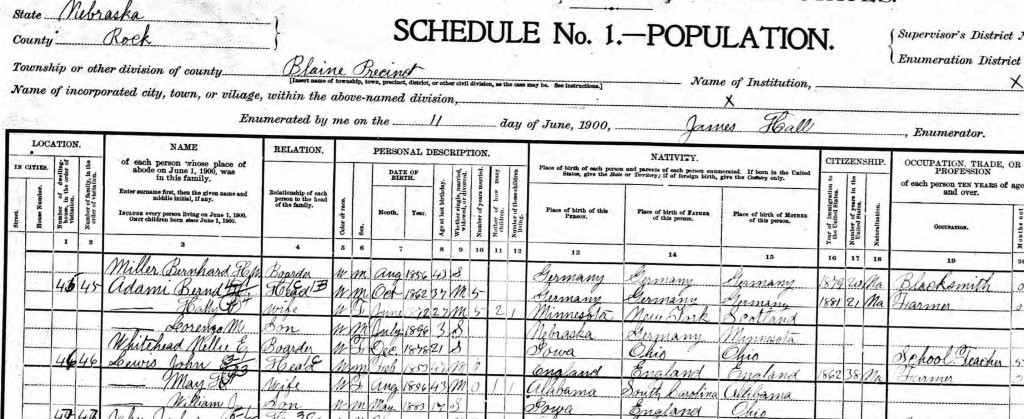 State Nebraska
County Rock
SCHEDULE No. 1.—POPULATION.
Supervisor's District
Enumeration District
Township or other division of county Blaine Precinct
[Insert name of township, town, precinct, district, or other civil division, as the case may be. See instructions.]
Name of Institution, X
Name of incorporated city, town, or village, within the above-named division, X
Enumerated by me on the 11 day of June, 1900, James Hall, Enumerator.
LOCATION. NAME RELATION. PERSONAL DESCRIPTION. NATIVITY. CITIZENSHIP. OCCUPATION, TRADE, OR PROFESSION
IN CITIES.
Street. House Number. Number of dwelling-house, in the order of visitation. Number of family, in the order of visitation.
of each person whose place of abode on June 1, 1900, was in this family.
Enter surname first, then the given name and middle initial, if any.
INCLUDE every person living on June 1, 1900.
OMIT children born since June 1, 1900.
Relationship of each person to the head of the family.
Color or race. Sex. DATE OF BIRTH. Month. Year. Age at last birthday. Whether single, married, widowed, or divorced. Number of years married. Mother of how many children. Number of these children living.
Place of birth of each person and parents of each person enumerated. If born in the United States, give the State or Territory; if of foreign birth, give the Country only.
Place of birth of this PERSON. Place of birth of FATHER of this person. Place of birth of MOTHER of this person.
Year of immigration to the United States. Number of years in the United States. Naturalization.
of each person TEN YEARS of age and over.
OCCUPATION. Months not
1 2 3 4 5 6 7 8 9 10 11 12 13 14 15 16 17 18 19 20
Miller Bernhard Boarder W M Aug 1856 43 S Germany Germany Germany 1879 Na Blacksmith
45 45 Adami Bernd Head W M Oct 1862 37 M 5 Germany Germany Germany 1881 Na Farmer
Wife W F June 27 M 5 2 1 Minnesota New York Scotland
Lorenzo M Son W M July 1896 3 S Nebraska Germany Minnesota
Whitehead Millie E Boarder W F Dec 1878 21 S Iowa Ohio Ohio School Teacher
46 46 Lewis John Head W M Feb M England England England 1862 38 Na Farmer
May Wife W F Aug 43 M 1 1 Alabama South Carolina Alabama
William J Son W M May 1883 17 S Iowa England Ohio